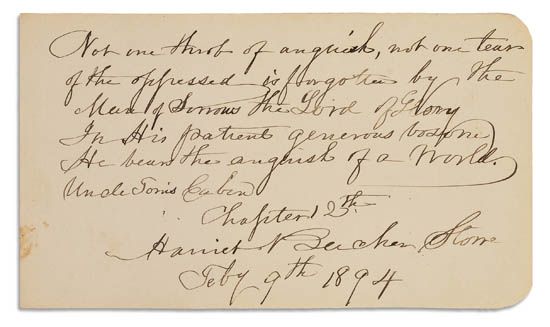 Not one throb of anguish, not one tear
of the oppressed is forgotten by the
Man of Sorrows the Lord of Glory
In His patient generous bosom
He bears the anguish of a World.
Uncle Tom's Cabin
Chapter 12th
Harriet Beecher Stowe
Feby 9th 1894